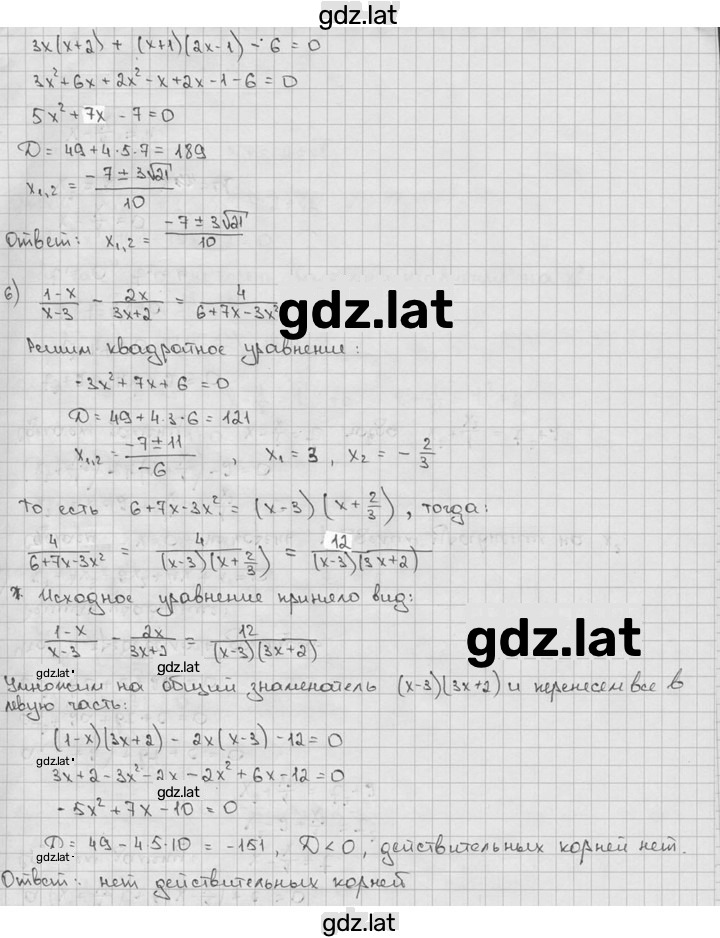 gdz.lat
3x(x+2) + (x+1)(2x-1) - 6 = 0
3x²+6x+2x²-x+2x-1-6=0
5x²+7x-7=0
D=49+4·5·7=189
x₁,₂ = (-7±3√21)/10
Ответ: x₁,₂ = (-7±3√21)/10
б) (1-x)/(x-3) - 2x/(3x+2) = 4/(6+7x-3x²)
gdz.lat
Решим квадратное уравнение:
-3x²+7x+6=0
D=49+4·3·6=121
x₁,₂ = (-7±11)/(-6), x₁=3, x₂=-2/3
То есть 6+7x-3x² = (x-3)(x+2/3), тогда:
4/(6+7x-3x²) = 4/((x-3)(x+2/3)) = 12/((x-3)(3x+2))
Исходное уравнение приняло вид:
(1-x)/(x-3) - 2x/(3x+2) = 12/((x-3)(3x+2))
gdz.lat
gdz.lat
Умножим на общий знаменатель (x-3)(3x+2) и перенесем все в
левую часть:
(1-x)(3x+2) - 2x(x-3) - 12 = 0
gdz.lat
3x+2-3x²-2x-2x²+6x-12=0
-5x²+7x-10=0
D=49-4·5·10=-151, D<0, действительных корней нет.
gdz.lat
Ответ: нет действительных корней
gdz.lat